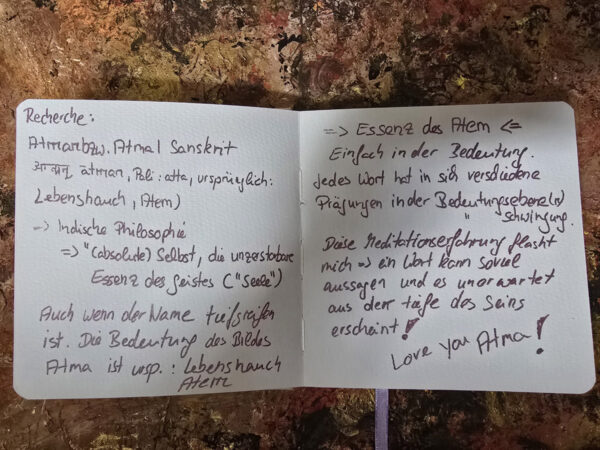 Recherche:
Atman bzw. Atma | Sanskrit
ātman, Pali: atta, ursprünglich:
Lebenshauch, Atem)
-> Indische Philosophie
=> "(absolute) Selbst, die unzerstörbare
Essenz des Geistes ("Seele")
Auch wenn der Name tiefgreifen
ist. Die Bedeutung des Bildes
Atma ist ursp.: Lebenshauch
Atem
=> Essenz des Atem <=
Einfach in der Bedeutung.
Jedes Wort hat in sich verschiedene
Prägungen in der Bedeutungsebene(n)
" schwingung.
Diese Meditationserfahrung flasht
mich => ein Wort kann soviel
aussagen und es unerwartet
aus der tiefe des Seins
erscheint!
Love you Atma!